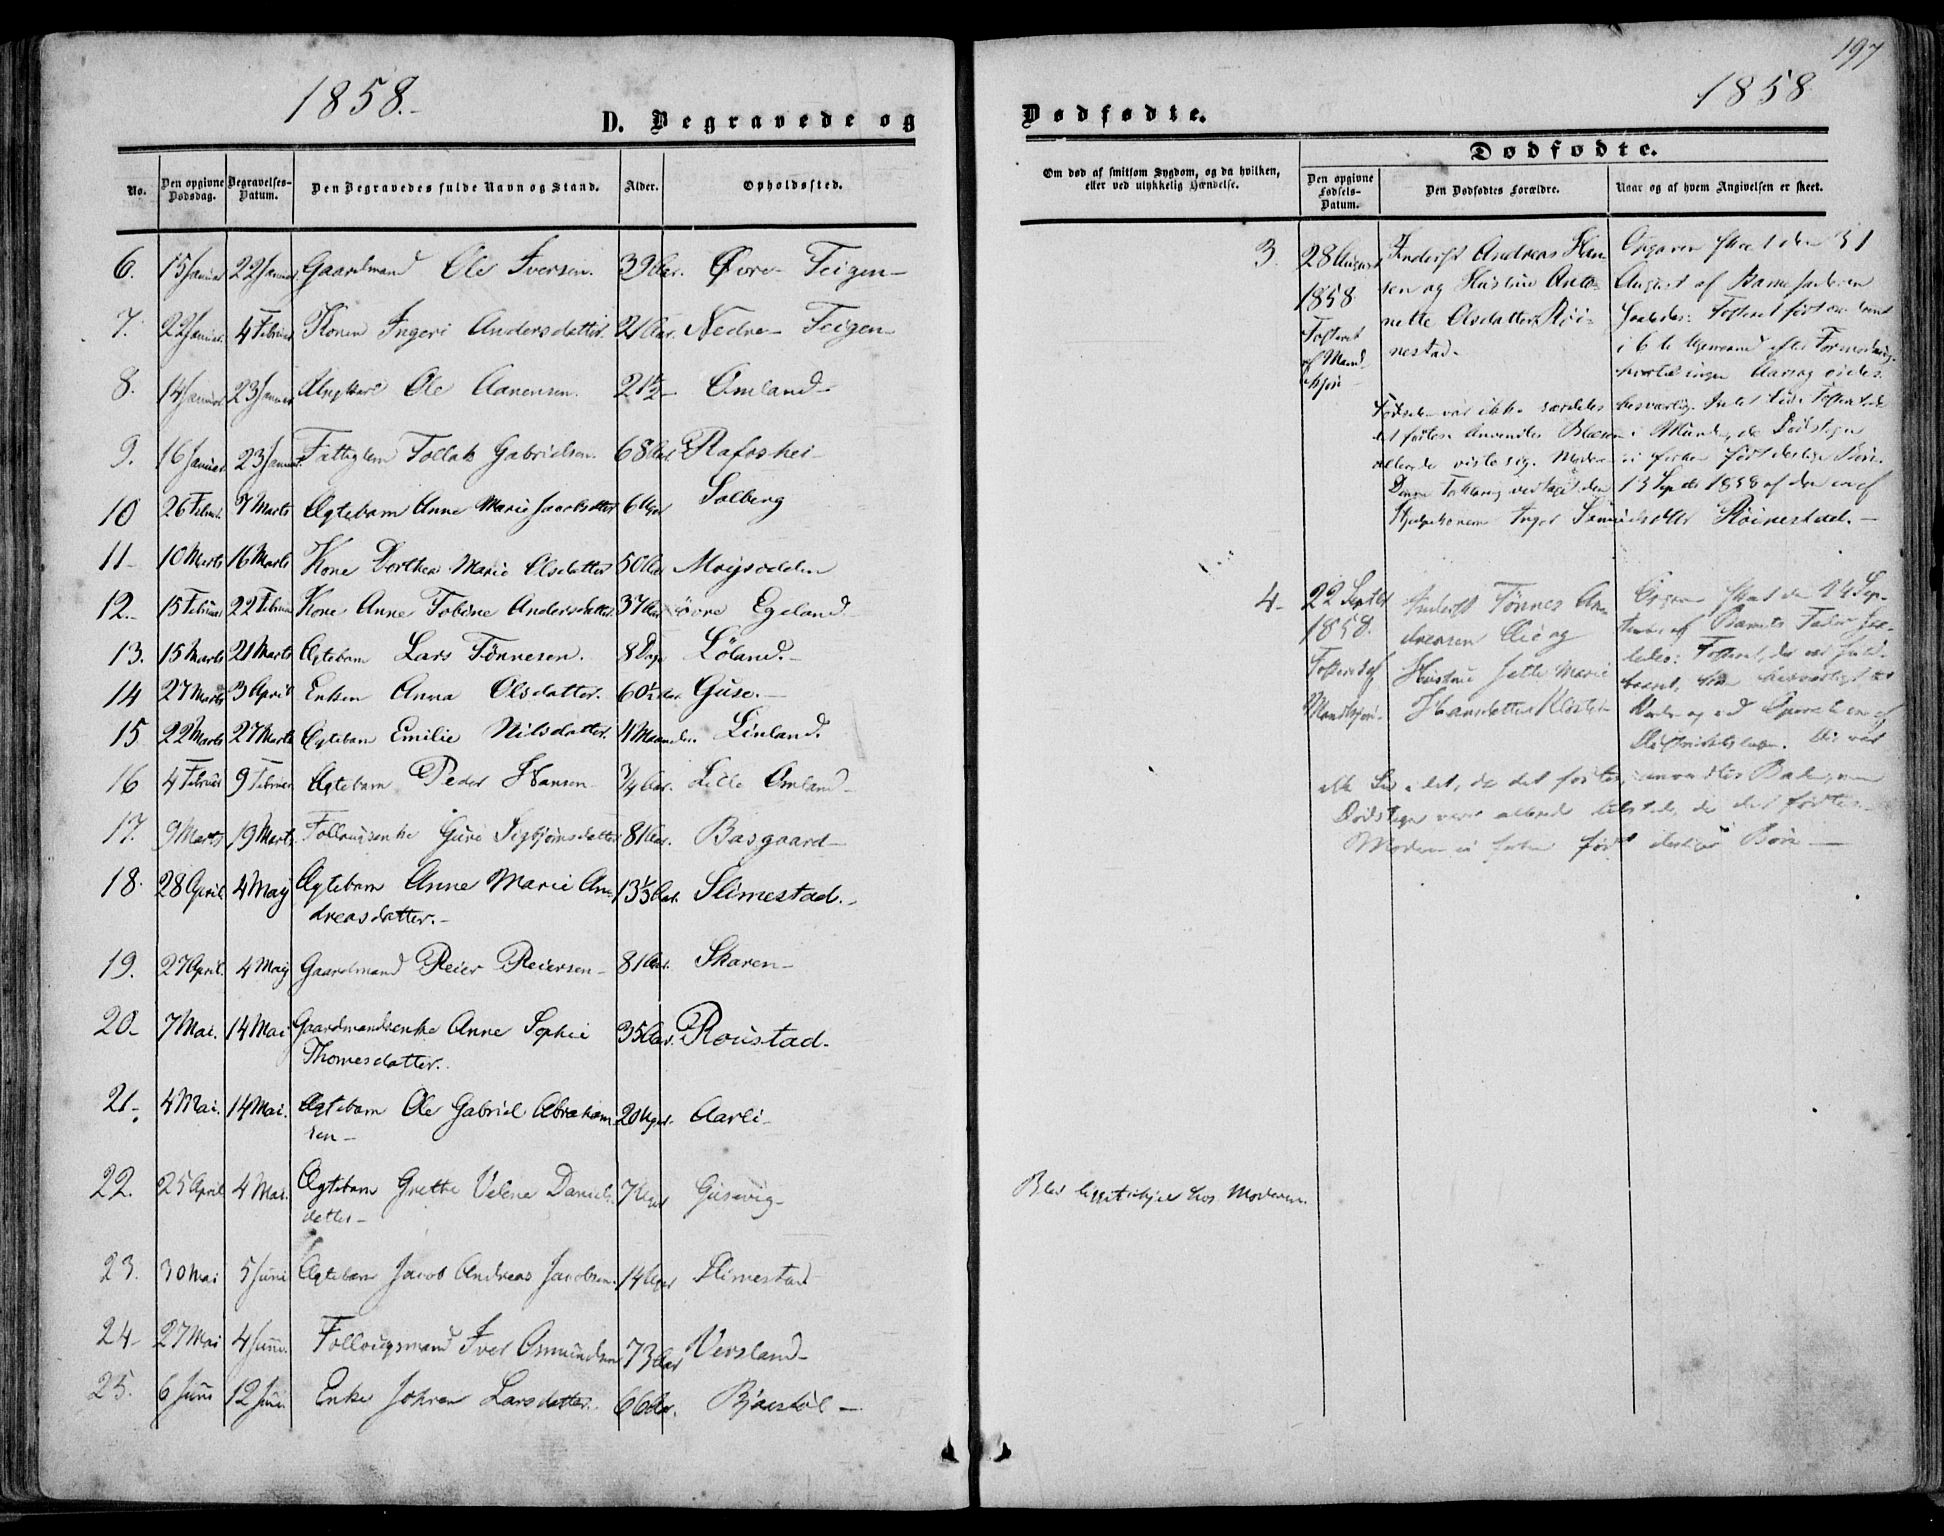 1858.
D. Begravede og
No.
Den opgivne Dødsdag.
Begravelses-Datum.
Den Begravedes fulde Navn og Stand.
Alder.
Opholdssted.
6. 15 Januar 22 Januar Gaardmand Ole Iversen. 39 Aar. Øvre Teigen
7. 22 Januar 4 Februar Konen Ingeri Andersdatter 21 Aar. Nedre Teigen
8. 14 Januar 23 Januar Ungkarl Ole Aanensen. 21 1/2 Omland
9. 16 Januar 23 Januar Fattiglem Tollak Gabrielsen. 68 Aar. Rafoshei
10 26 Februar 7 Marts Ægtebarn Anne Marie Jacobsdatter 6 Uger Solberg
11 10 Marts 16 Marts Kone Dorthea Marie Olsdatter 50 Aar
12. 15 Februar 22 Februar Kone Anne Tobine Andersdatter 37 Aar øvre Egeland
13. 15 Marts 21 Marts Ægtebarn Lars Tønnesen. 8 Dage Løland.
14 27 Marts 3 April Enken Anna Olsdatter. 60 1/2 Aar. Guse.
15 22 Marts 27 Marts Ægtebarn Emilie Nilsdatter. 4 Maaneder. Linland.
16 4 Februar 9 Februar Ægtebarn Peder Hansen 3/4 Aar. Lille Omland
17. 9 Marts 19 Marts Follaugsenke Guri Sigbjørnsdatter 81 Aar. Basgaard
18. 28 April 4 Maj Ægtebarn Anne Marie An-
dreasdatter. 13 1/3 Aar. Slimestad.
19. 27 April. 4 Maj Gaardmand Reier Reiersen 81 Aar. Skaren
20 7 Mai. 14 Mai Gaardmandsenke Anne Sophie
Thomesdatter. 35 Aar. Roiistad.
21 4 Mai. 14 Mai. Ægtebarn Ole Gabriel Abraham
sen 20 Uger. Aarli
22. 25 April 4 Mai. Ægtebarn Grethe Velene Daniels
datter 7 Uger Gusevig
23. 30 Mai 5 Juni Ægtebarn Jacob Andreas Jacobsen. 14 Uger Slimestad
24 27 Mai 4 Juni. Follougsmand Iver Osmundsen 73 Aar Versland
25. 6 Juni 12 Juni Enke Johren Larsdatter. 66 Aar. Bjørstøl
197
1858
Dødfødte.
Om død af smitsom Sygdom, og da hvilken,
eller ved ulykkelig Hændelse.
Dødfødte.
Den opgivne Fødsels-Datum.
Den Dødfødtes Forældre.
Naar og af hvem Angivelsen er skeet.
3. 28 August
1858
Fosteret
af Mand
kjøn
Inderst Andreas Han
sen og Hustru Anto
nette Olsdatter Røi
nestad.
Opgaven skeet den 31
August af Barnefaderen
saaledes: Fosteret født om trent
i 6te Ugemaand efter Formodning
Fødselen var ikke særdeles besværlig. Intet Liv i Fosteret, da
det fødtes. Anvendtes Blæsen i Munden, da Dødstegn
allerede viste sig. Moderen ei forhen født deslige Børn.
15 Septbr 1858 af den ene af
Hjelpekonerne Inger Røinestad.
4. 22 Septbr
1858.
Fosteret af
Mandkjøn.
Inderst Tønnes An
dreasen og
Hustrue Jette Marie
Hansdatter
Opgaven skeet den 24 Sep
tember af Barnets Fader saa
ledes: Fosteret, der var fuld
baaret, kom besværligt til
Verden og ved Operation af
Districtslægen. Der var
ikke Liv i det, da det fødtes,
Dødstegn vare allerede tilstede, da det fødtes.
Moderen ei forhen født deslige Børn
Blev ligget ihjel hos Moderen.